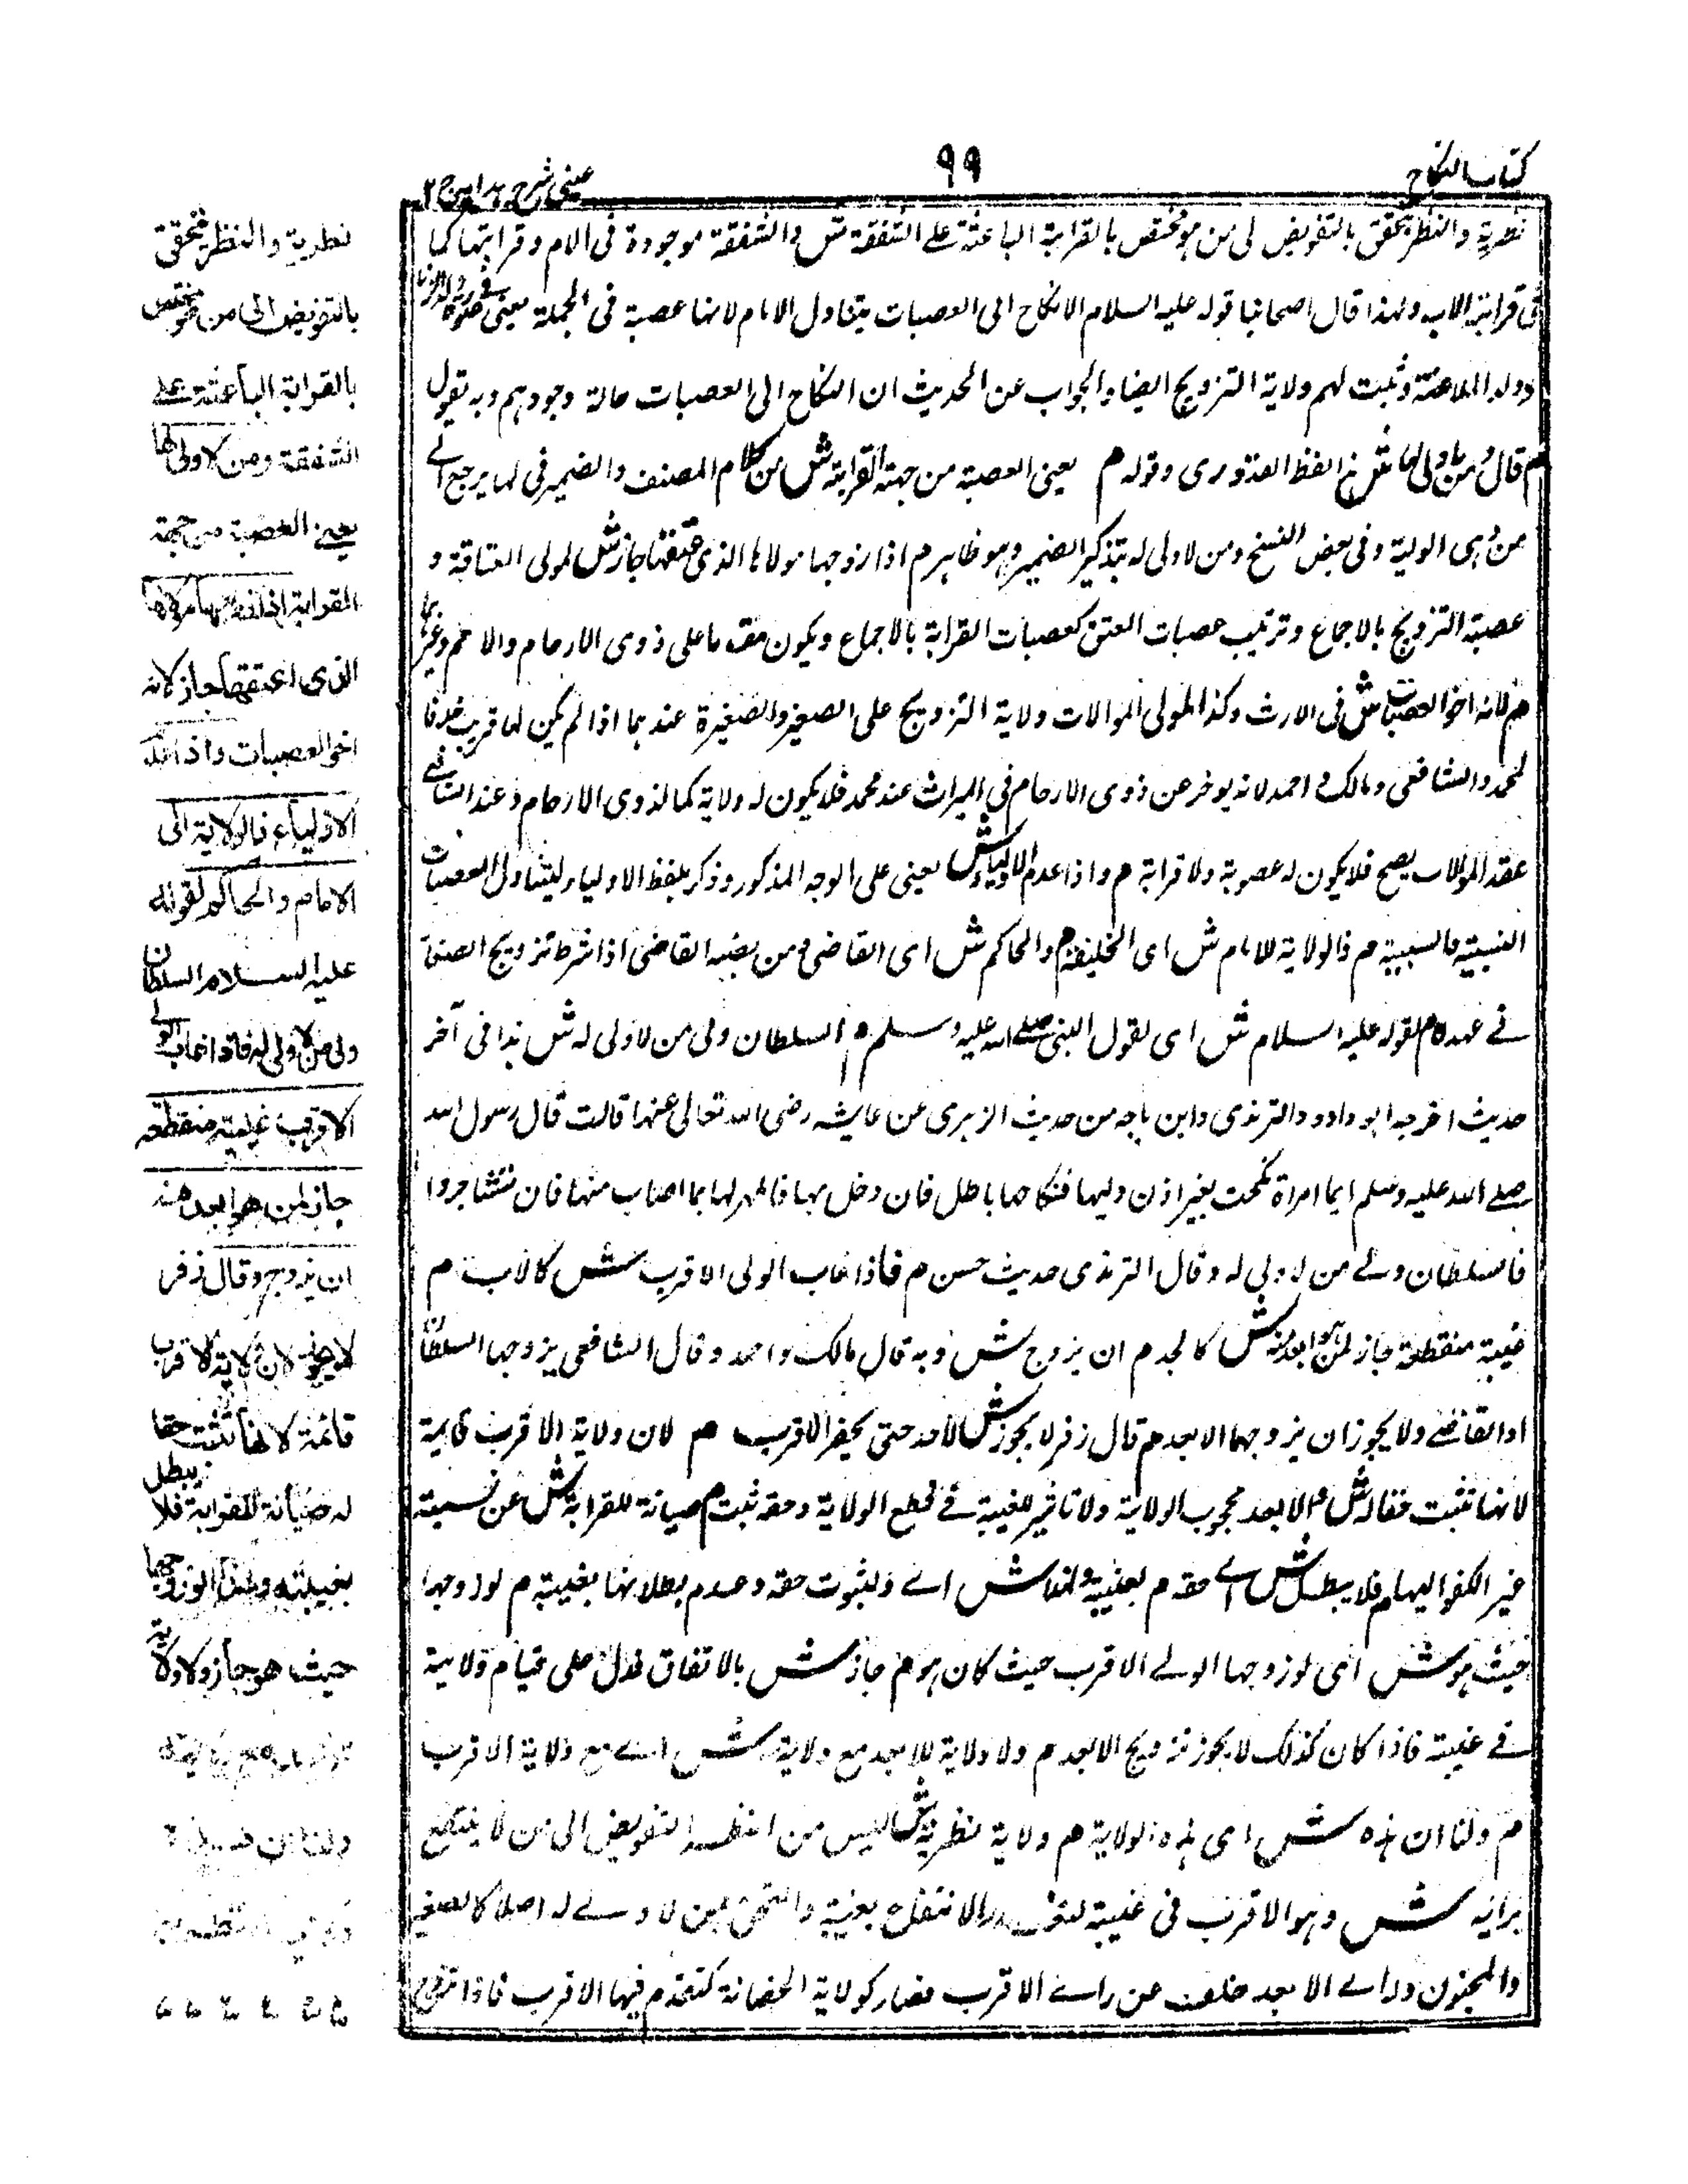 كتاب النكاح
٩٩
عينى شرح هدايه ج ٢
نظرية والنظر يتحقق بالتفويض الى من هو مختص بالقرابة الباعثة على الشفقة ش والشفقة موجودة فى الام وقرابتها كما
فى قرابة الاب ولهذا قال اصحابنا قوله عليه السلام الانكاح الى العصبات يتناول الام لانها عصبة فى الجملة يعنى فى حق ولد الزنا
وولد الملاعنة وثبت لهم ولاية التزويج ايضا والجواب عن الحديث ان النكاح الى العصبات حالة وجودهم وبه نقول
م قال ومن لا ولى لها ش هذا لفظ القدورى وقوله م يعنى العصبة من جهة القرابة ش من كلام المصنف والضمير فى لها يرجع الے
من هى الولية وفى بعض النسخ ومن لا ولى له بتذكير الضمير وهو ظاهر م اذا زوجها مولاها الذى اعتقها جاز ش لمولى العتاقة و
عصبة التزويج بالاجماع وترتيب عصبات العتق كعصبات القرابة بالاجماع ويكون مقدما على ذوى الارحام والام وغيرها
م لانه اخر العصبات ش فى الارث وكذا لمولى الموالات ولاية التزويج على الصغير والصغيرة عندهما اذا لم يكن لها قريب خلافا
لمحمد والشافعى ومالك واحمد لانه يوخر عن ذوى الارحام فى الميراث عند محمد فلا يكون له ولاية كما لذوى الارحام وعند الشافے
عقد الموالات يصح فلا يكون له عصوبة ولا قرابة م واذا عدم الاولياء ش يعنى على الوجه المذكور وذكر بلفظ الاولياء ليتناول العصبات
النسبية والسببية م فالولاية للامام ش اى الخليفة م والحاكم ش اى القاضى ومن نصبه القاضى اذا شرط تزويج الصغار
فے عهده م لقوله عليه السلام ش اى لقول النبى صلے الله عليه وسلم م السلطان ولى من لا ولى له ش هذا فى آخر
حديث اخرجه ابو داود والترمذى وابن ماجه من حديث الزهرى عن عايشه رضى الله تعالى عنها قالت قال رسول الله
صلے الله عليه وسلم ايما امراة نكحت بغير اذن وليها فنكاحها باطل فان دخل بها فالمهر لها بما اصاب منها فان تشاجروا
فالسلطان ولے من لا ولى له وقال الترمذى حديث حسن م فاذا غاب الولى الاقرب ش كالاب م
غيبة منقطعة جاز لمن هو ابعد منه ش كالجد م ان يزوج ش وبه قال مالك واحمد وقال الشافعى يزوجها السلطان
او القاضے ولا يجوز ان يزوجها الابعد م قال زفر لا يجوز ش لاحد حتى يحضر الاقرب م لان ولاية الاقرب قايمة
لانها تثبت حقا له ش والابعد محجوب الولاية ولا تاثير للغيبة فے قطع الولاية وحقه ثبت م صيانة للقرابة ش عن نسبة
غير الكفو اليها م فلا يبطل ش اے حقه م بغيبته ولهذا ش اے ولثبوت حقه وعدم بطلانها بغيبته م لو زوجها
حيث هو ش اى لو زوجها الولے الاقرب حيث كان هو م جاز ش بالاتفاق فدل على قيام ولاية
فے غيبته فاذا كان كذلك لا يجوز تزويج الابعد م ولا ولاية للابعد مع ولاية ش اے مع ولاية الاقرب
م ولنا ان هذه ش اى هذه الولاية م ولاية نظرية ش وليس من النظر التفويض الى من لا ينتفع
برايه ش وهو الاقرب فى غيبته الانتفاع بغيبته والتحق بمن لا ولے له اصلا كالصغير
والمجنون وراے الابعد خلف عن راے الاقرب فصار كولاية الحضانة كتقدم فيها الاقرب فاذا
نظرية والنظر يتحقق
بالتفويض الى من هو مختص
بالقرابة الباعثة على
الشفقة ومن لا ولى لها
يعنى العصبة من جهة
القرابة اذا زوجها مولاها
الذى اعتقها جاز لانه
اخر العصبات واذا عدم
الاولياء فالولاية الى
الامام والحاكم لقوله
عليه السلام السلطان
ولى من لا ولى له فاذا غاب الولى
الاقرب غيبة منقطعة
جاز لمن هو ابعد منه
ان يزوج وقال زفر
لا يجوز لان ولاية الاقرب
قائمة لانها تثبت حقا
له صيانة للقرابة فلا يبطل
بغيبته ولهذا لو زوجها
حيث هو جاز ولا ولاية
ولنا ان هذه